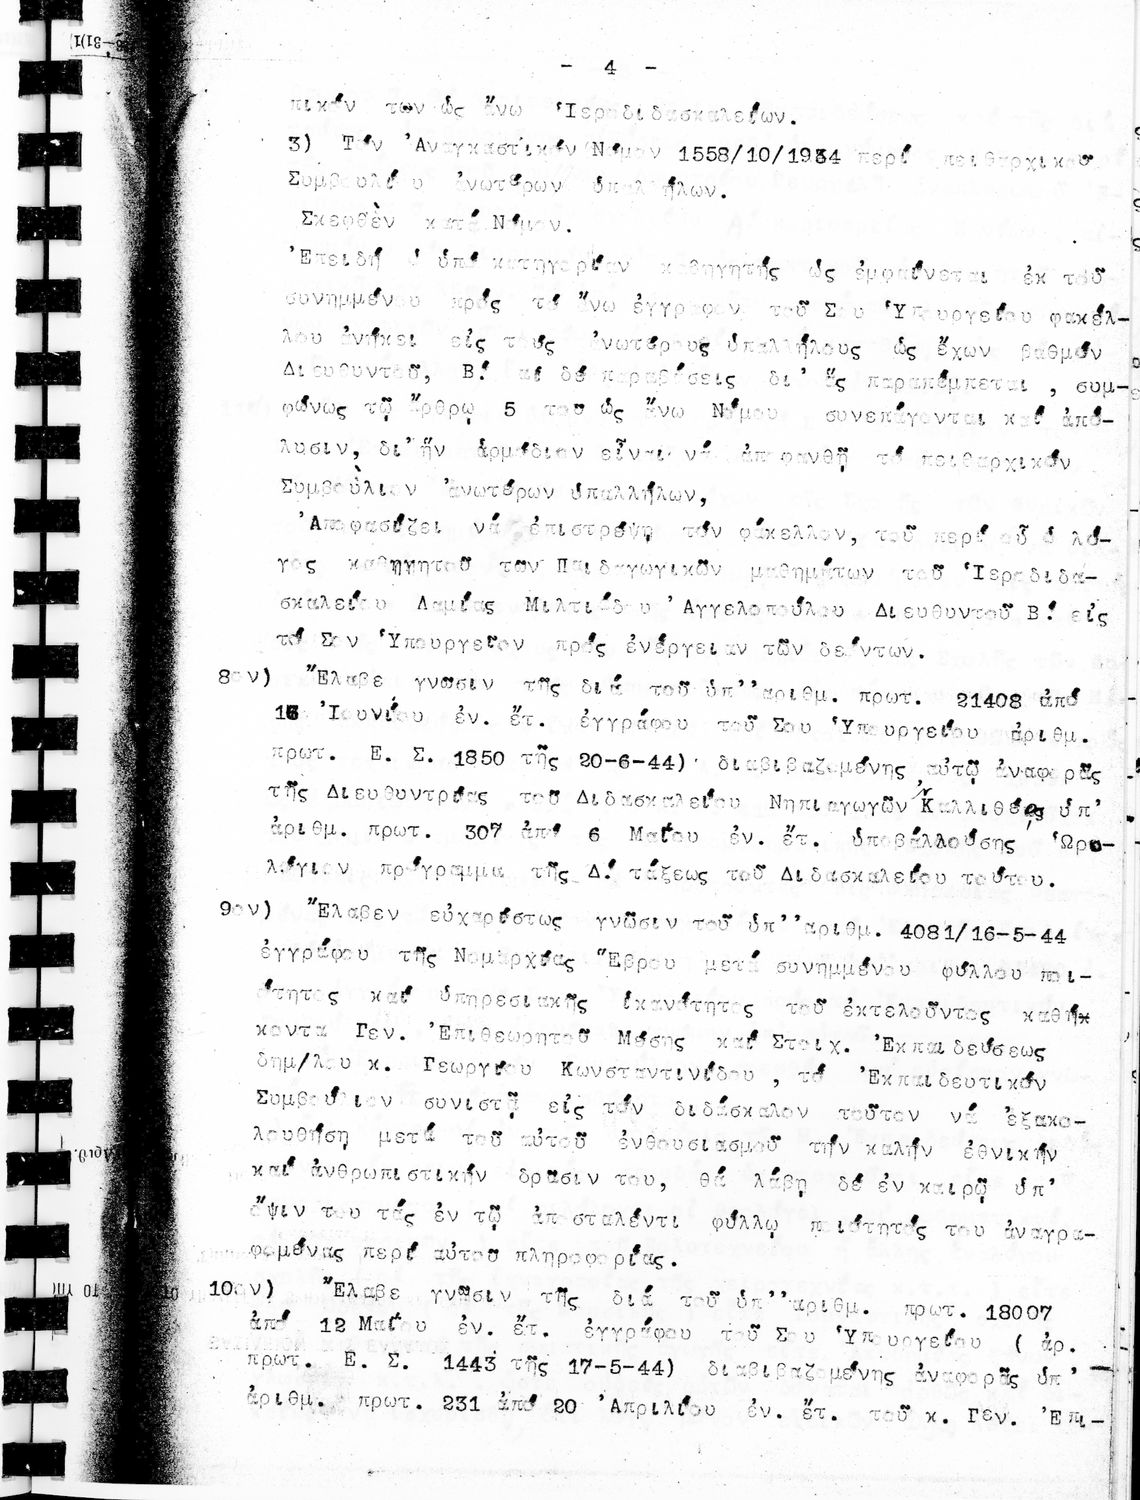 - 4 -
πικήν των ὡς ἄνω Ἱεροδιδασκαλείων.
3) Τόν Ἀναγκαστικόν Νόμον 1558/10/1934 περί πειθαρχικου
Συμβουλίου ἀνωτέρων ὑπαλλήλων.
Σκεφθὲν κατά Νόμον.
Ἐπειδή ὁ ὑπό κατηγορίαν καθηγητής ὡς ἐμφαίνεται ἐκ τοῦ
συνημμένου πρός τό ἄνω ἔγγραφον τοῦ Σου Ὑπουργείου φακέλ-
λου ἀνήκει εἰς τούς ἀνωτέρους ὑπαλλήλους ὡς ἔχων βαθμόν
Διευθυντοῦ, Β΄ αἱ δέ παραβάσεις δι' ἅς παραπέμπεται , συμ-
φώνως τῷ ἄρθρῳ 5 του ὡς ἄνω Νόμου , συνεπάγονται καί ἀπό-
λυσιν, δι' ἥν ἁρμόδιον εἶναι νά ἀποφανθῇ τό πειθαρχικόν
Συμβοὺλιον ἀνωτέρων ὑπαλλήλων,
Ἀποφασίζει νά ἐπιστρέψῃ τόν φάκελλον, τοῦ περί οὗ ὁ λό-
γος καθηγητοῦ των Παιδαγωγικῶν μαθημάτων τοῦ Ἱεροδιδα-
σκαλείου Λαμίας Μιλτιάδου Ἀγγελοπούλου Διευθυντοῦ Β΄ εἰς
τό Σον Ὑπουργεῖον πρός ἐνέργειαν τῶν δεόντων.
8ον) Ἔλαβε γνῶσιν τῆς διά τοῦ ὑπ''ἀριθμ. πρωτ. 21408 ἀπό
16 Ἰουνίου ἐν. ἔτ. ἐγγράφου τοῦ Σου Ὑπουργείου ἀριθμ.
πρωτ. Ε. Σ. 1850 τῆς 20-6-44) διαβιβαζομένης αὐτῷ ἀναφορᾶς
τῆς Διευθυντρίας τοῦ Διδασκαλείου Νηπιαγωγῶν Καλλιθέας ὑπ'
ἀριθμ. πρωτ. 307 ἀπό 6 Μαΐου ἐν. ἔτ. ὑποβάλλούσης Ὡρο-
λόγιον πρόγραμμα τῆς Δ΄ τάξεως τοῦ Διδασκαλείου τούτου.
9ον) Ἔλαβεν εὐχαρίστως γνῶσιν τοῦ ὑπ''ἀριθμ. 4081/16-5-44
ἐγγράφου τῆς Νομαρχίας Ἕβρου μετά συνημμένου φύλλου ποι-
ότητος καί ὑπηρεσιακῆς ἱκανότητος τοῦ ἐκτελοῦντος καθή
κοντα Γεν. Ἐπιθεωρητοῦ Μέσης καί Στοιχ. Ἐκπαιδεύσεως
δημ/λου κ. Γεωργίου Κωνσταντινίδου , τό Ἐκπαιδευτικόν
Συμβούλιον συνιστᾷ εἰς τόν διδάσκαλον τοῦτον νά ἐξακο-
λουθήσῃ μετά τοῦ αὐτοῦ ἐνθουσιασμοῦ τήν καλήν ἐθνικήν
καί ἀνθρωπιστικήν δρᾶσιν του, θά λάβῃ δέ ἐν καιρῷ ὑπ'
ὄψιν του τάς ἐν τῷ ἀποσταλέντι φύλλῳ ποιότητός του ἀναγρα-
φομένας περί αὐτοῦ πληροφορίας.
10ον) Ἔλαβε γνῶσιν τῆς διά τοῦ ὑπ''ἀριθμ. πρωτ. 18007
ἀπό 12 Μαΐου ἐν. ἔτ. ἐγγράφου τοῦ Σου Ὑπουργείου ( ἀρ.
πρωτ. Ε. Σ. 1443 τῆς 17-5-44) διαβιβαζομένης ἀναφορᾶς ὑπ'
ἀριθμ. πρωτ. 231 ἀπό 20 Ἀπριλίου ἐν. ἔτ. τοῦ κ. Γεν. Ἐπι-